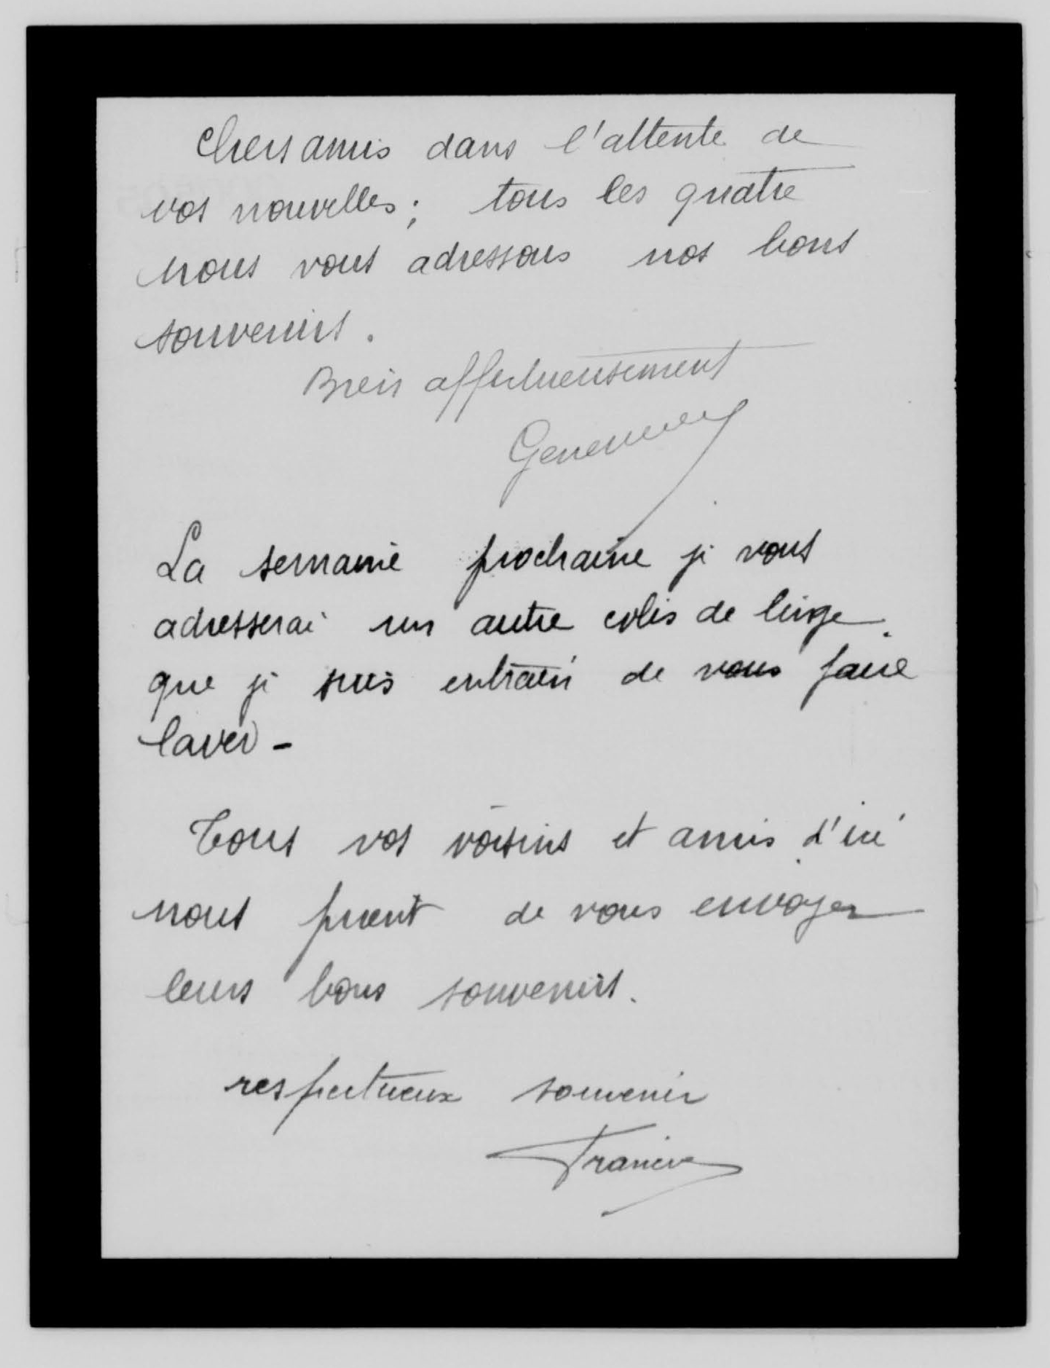 Chers amis dans l'attente de
vos nouvelles; tous les quatre
nous vous adressons nos bons
souvenirs.
Bien affectueusement
La semaine prochaine je vous
adresserai un autre colis de linge
que je suis entrain de vous faire
laver -
Tous vos voisins et amis d'ici
nous prient de vous envoyer
leurs bons souvenirs.
respectueux souvenir